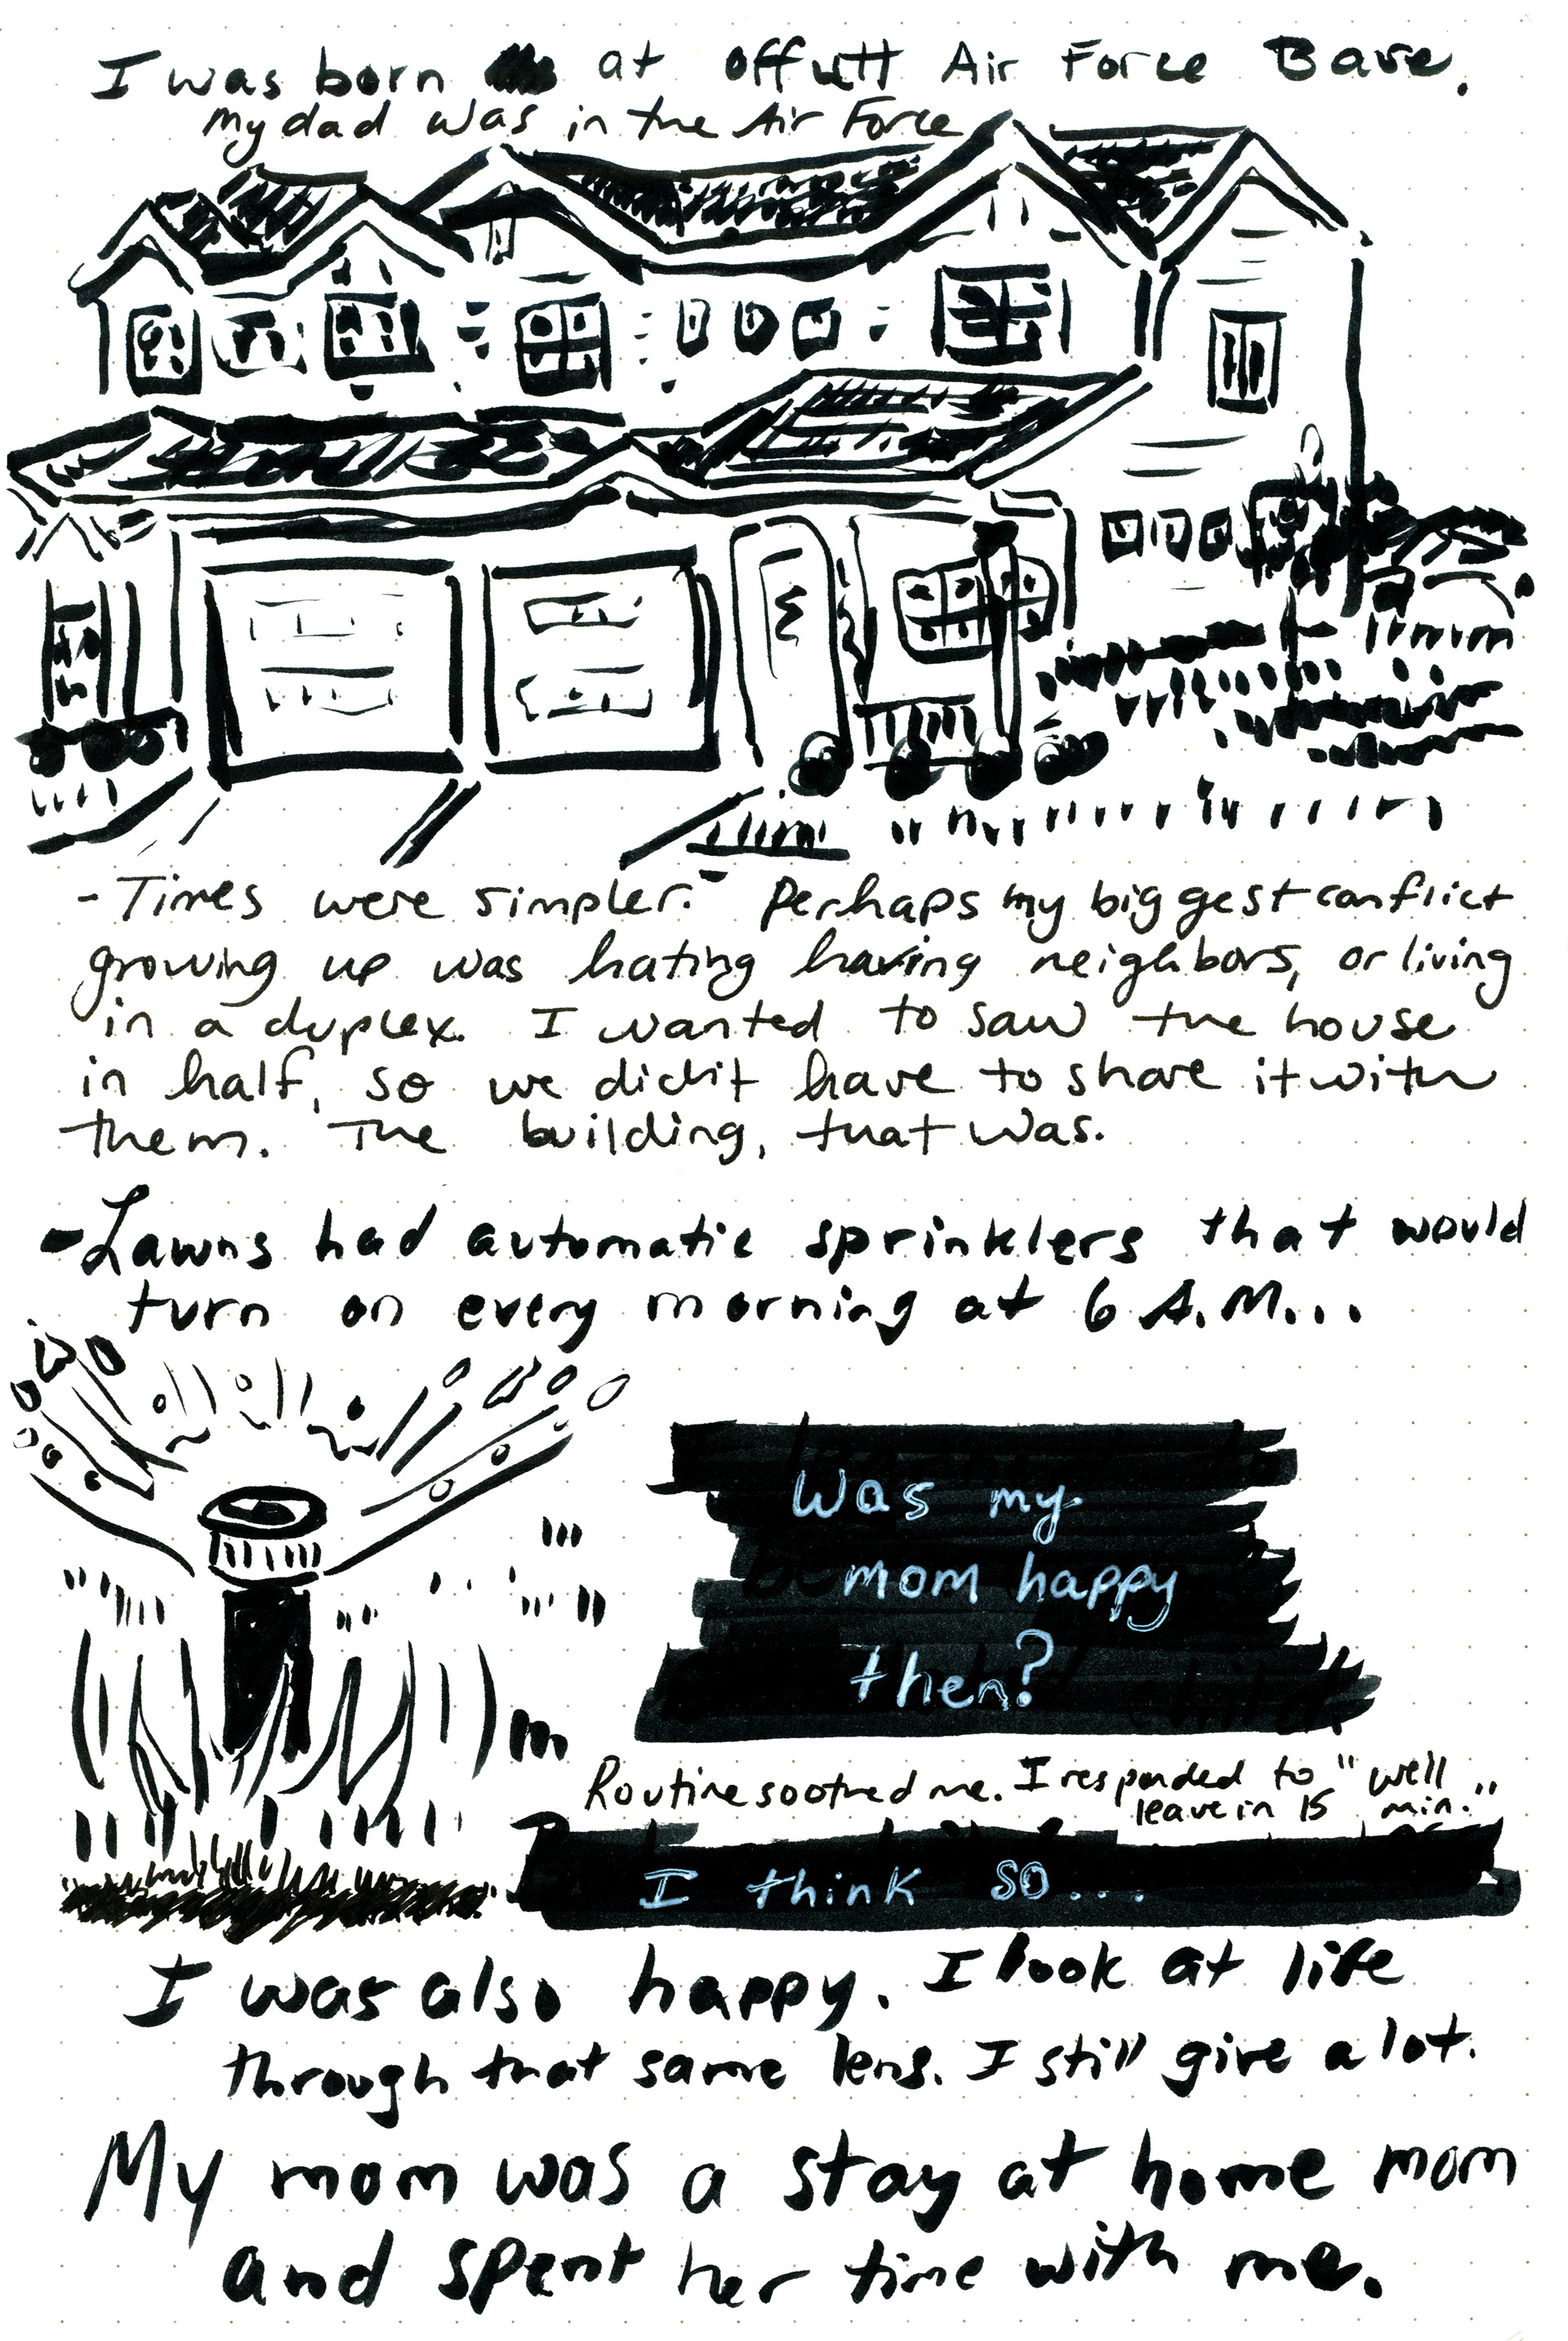 I was born at Offutt Air Force Base.
My dad was in the Air Force
- Times were simpler. - Perhaps my biggest conflict
growing up was hating having neighbors, or living
in a duplex. I wanted to saw the house
in half, so we didn't have to share it with
them. The building, that was.
- Lawns had automatic sprinklers that would
turn on every morning at 6 A.M...
Was my
mom happy
then?
Routine soothed me. I responded to "well
leave in 15 min."
I think so...
I was also happy. I look at life
through that same lens. I still give a lot.
My mom was a stay at home mom
and spent her time with me.